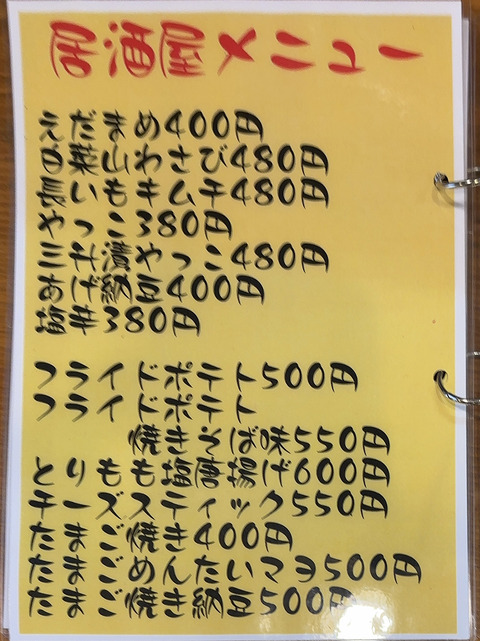 居酒屋メニュー
えだまめ400円
白菜山わさび480円
長いもキムチ480円
やっこ380円
三升漬やっこ480円
あげ納豆400円
塩辛380円
フライドポテト500円
フライドポテト
焼きそば味550円
とりもも塩唐揚げ600円
チーズスティック550円
たまご焼き400円
たまごめんたいマヨ500円
たまご焼き納豆500円